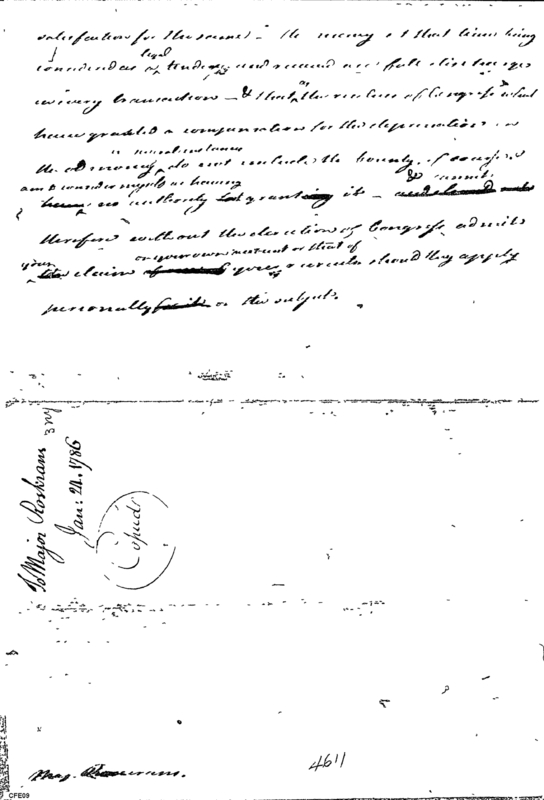 satisfaction for the same. – The money at that time being
legal
considered as a tender, and received in full discharge
in every transaction – & that as the resolves of Congress which
have granted a compensation for the depreciation
in several instances
the old money, do not include the bounty, I
am to consider myself as having & cannot
no authority granting it –
therefore without the direction of Congress admit
your on your own account or that of
claim your recruits should they apply
personally on the subject.
To Major Roskrans
3 NY
Jan: 24. 1786
Copied
4611
Maj.
CFE09